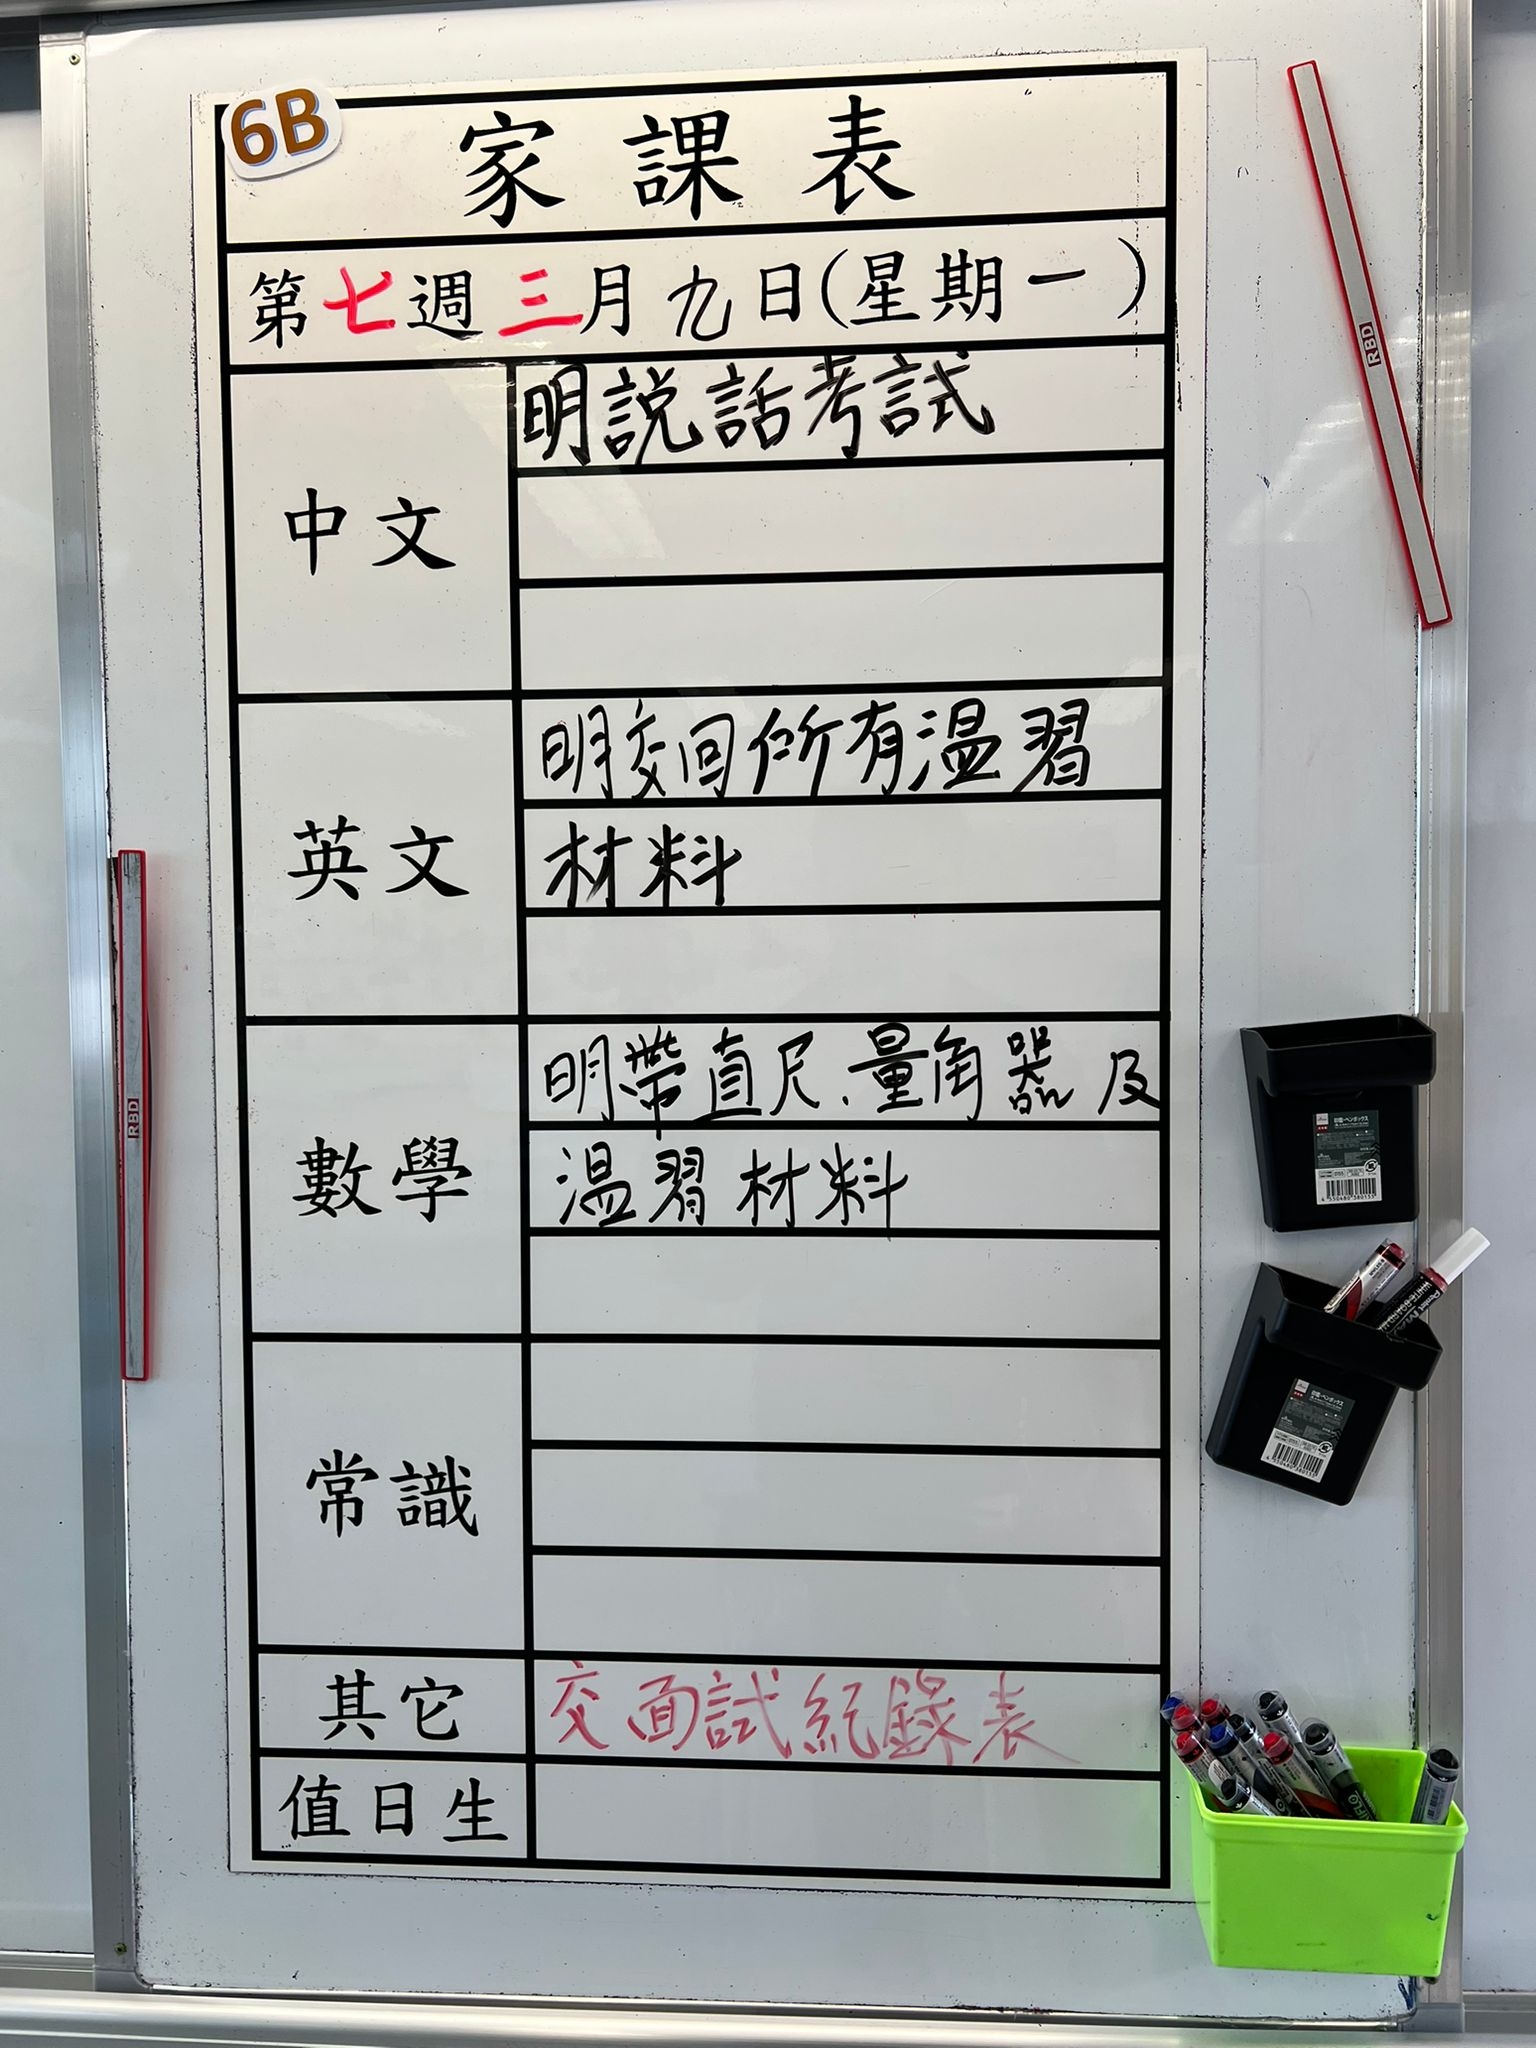 6B
家課表
第七週三月九日(星期一)
中文
明說話考試
英文
明交回所有温習
材料
數學
明帶直尺、量角器及
温習材料
常識
其它
交面試紀錄表
值日生
RBD
RBD
4 550480 380155
4 550480 380155